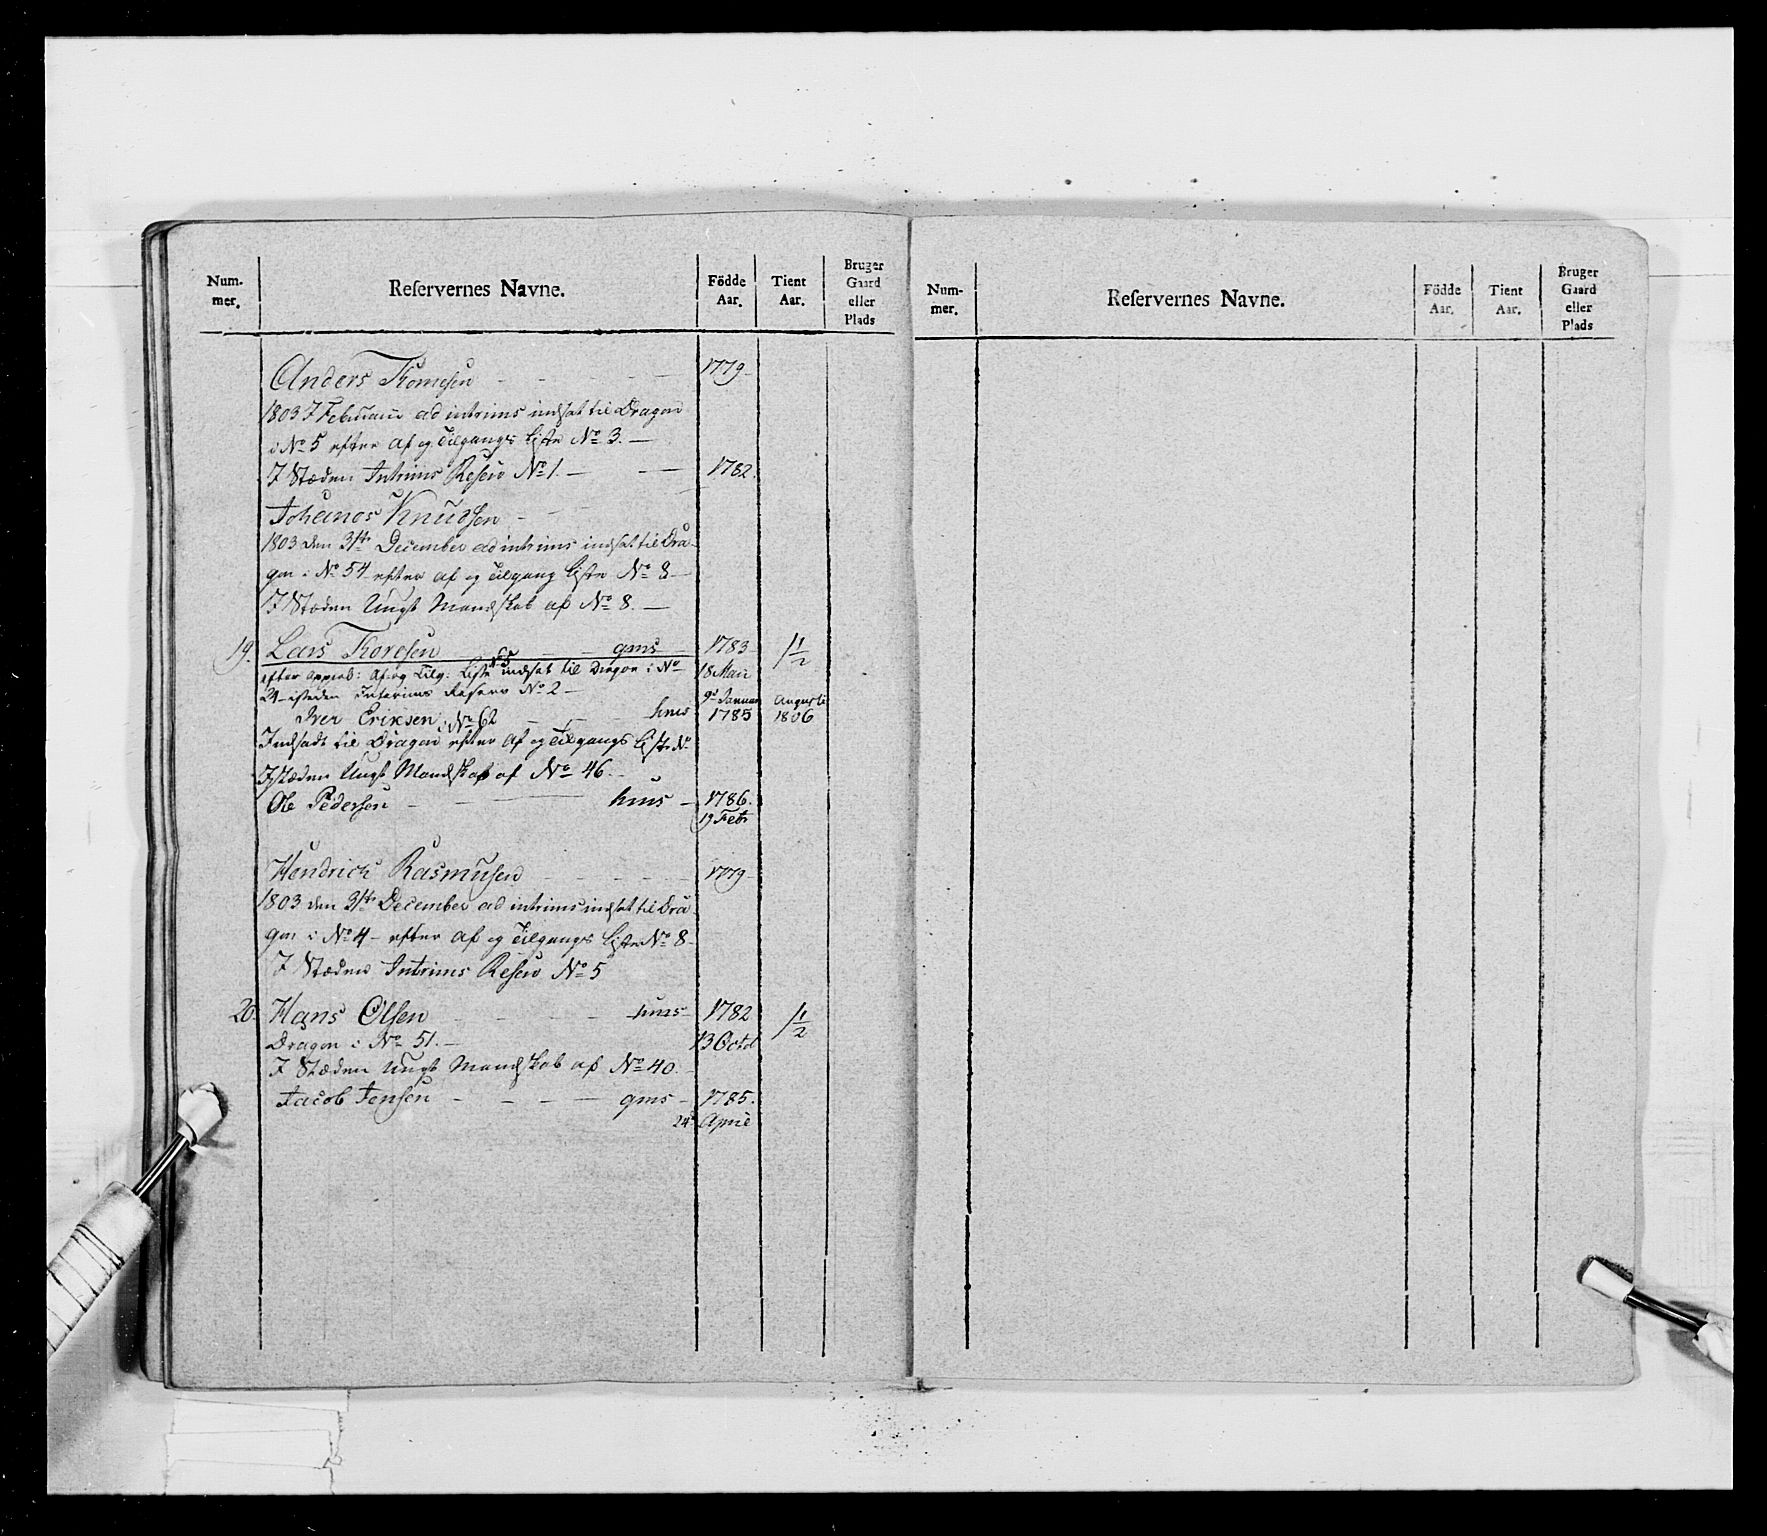 Num-
mer.
Reservernes Navne.
Födde
Aar.
Tient
Aar.
Bruger
Gaard
eller
Plads
Anders Thomesen - - - - 1779
1803 7 Februarii ad intrims indsat til Dragon
i No 5 efter af og Tilgangs Liste No 3. —
I Stæden Intrims Reserv No 1. — — 1782.
Johanes Knudsen - - -
1803 den 31te December ad intrims indsat til Dra-
gon i No 54 efter af og Tilgang Liste No 8 —
I Stæden Ungt Mandskab af No 8. —
19. Lars Thoresen - - gms 1783 1 1/2
efter approb: Af og Tilg: Liste indsat til Dragon i No 18 Mai
24 isteden Interims Reserv No 2 — 9d Januar Augusti
Iver Eriksen i No 62 — — hms 1785 1806
Indsadt til Dragon efter Af og Tilgangs Liste No
I Stæden Ungt Mandskab af No 46. -
Ole Pedersen - - — hms - 1786.
19 Febr
Hendrich Rasmusen - - - - 1779
1803 den 31te December ad intrims indsat til Dra-
gon i No 4 - efter af og Tilgangs Liste No 8 -
I Stæden Intrims Reserv No 5
20. Hans Olsen - - - - hms - 1782 1 1/2
Dragon i No 51. — 13 Octd
I Stæden Ungt Mandskab af No 40. -
Jacob Jensen - - - — gms - 1785.
24d April
Num-
mer.
Reservernes Navne.
Födde
Aar.
Tient
Aar.
Bruger
Gaard
eller
Plads